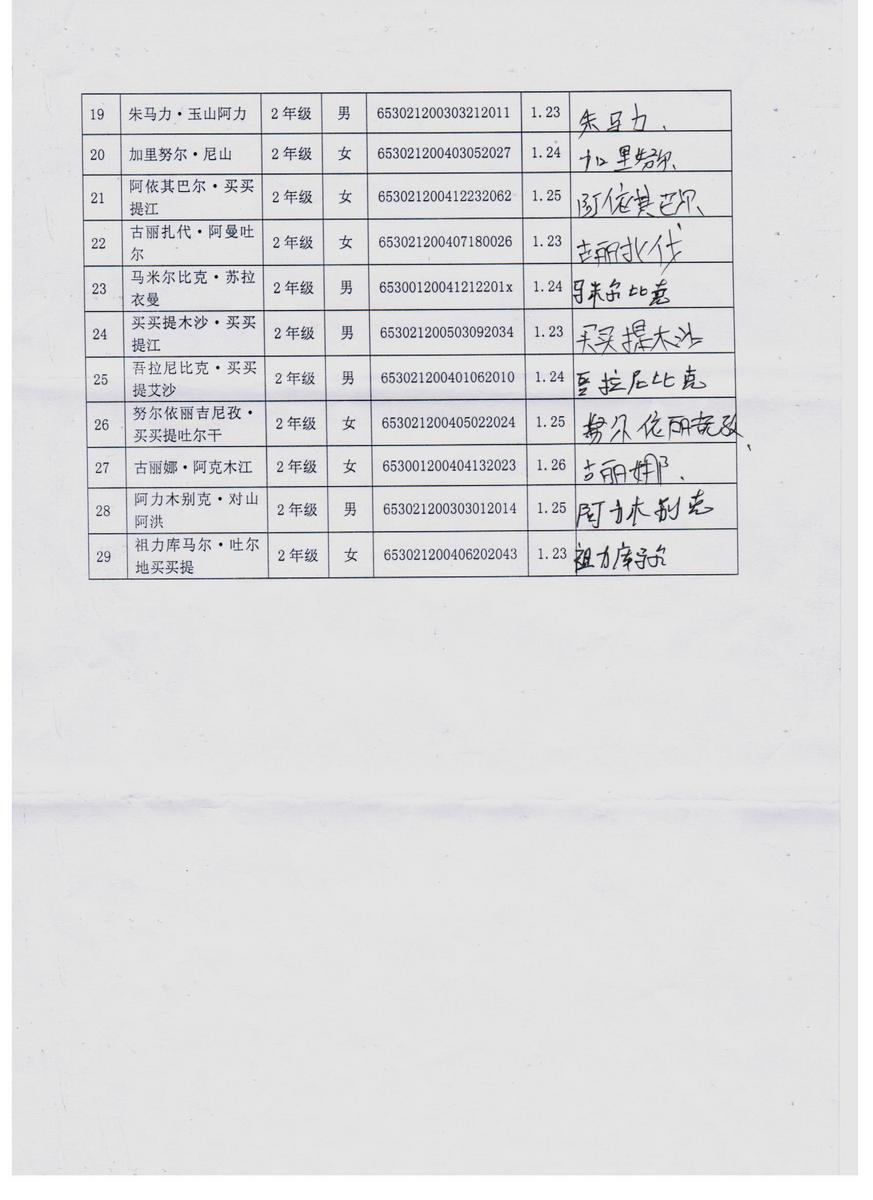 19 朱马力·玉山阿力 2年级 男 653021200303212011 1.23 朱马力.
20 加里努尔·尼山 2年级 女 653021200403052027 1.24 加里努尔
21 阿依其巴尔·买买 2年级 女 653021200412232062 1.25 阿依其巴尔
提江
22 古丽扎代·阿曼吐 2年级 女 653021200407180026 1.23 古丽
尔
23 马米尔比克·苏拉 2年级 男 65300120041212201x 1.24 马米尔比克
衣曼
24 买买提木沙·买买 2年级 男 653021200503092034 1.23 买买提木沙
提江
25 吾拉尼比克·买买 2年级 男 653021200401062010 1.24 拉尼比克
提艾沙
26 努尔依丽吉尼孜· 2年级 女 653021200405022024 1.25 努尔依丽
买买提吐尔干
27 古丽娜·阿克木江 2年级 女 653001200404132023 1.26 古丽娜.
28 阿力木别克·对山 2年级 男 653021200303012014 1.25 阿力木别克
阿洪
29 祖力库马尔·吐尔 2年级 女 653021200406202043 1.23 祖力库马尔
地买买提